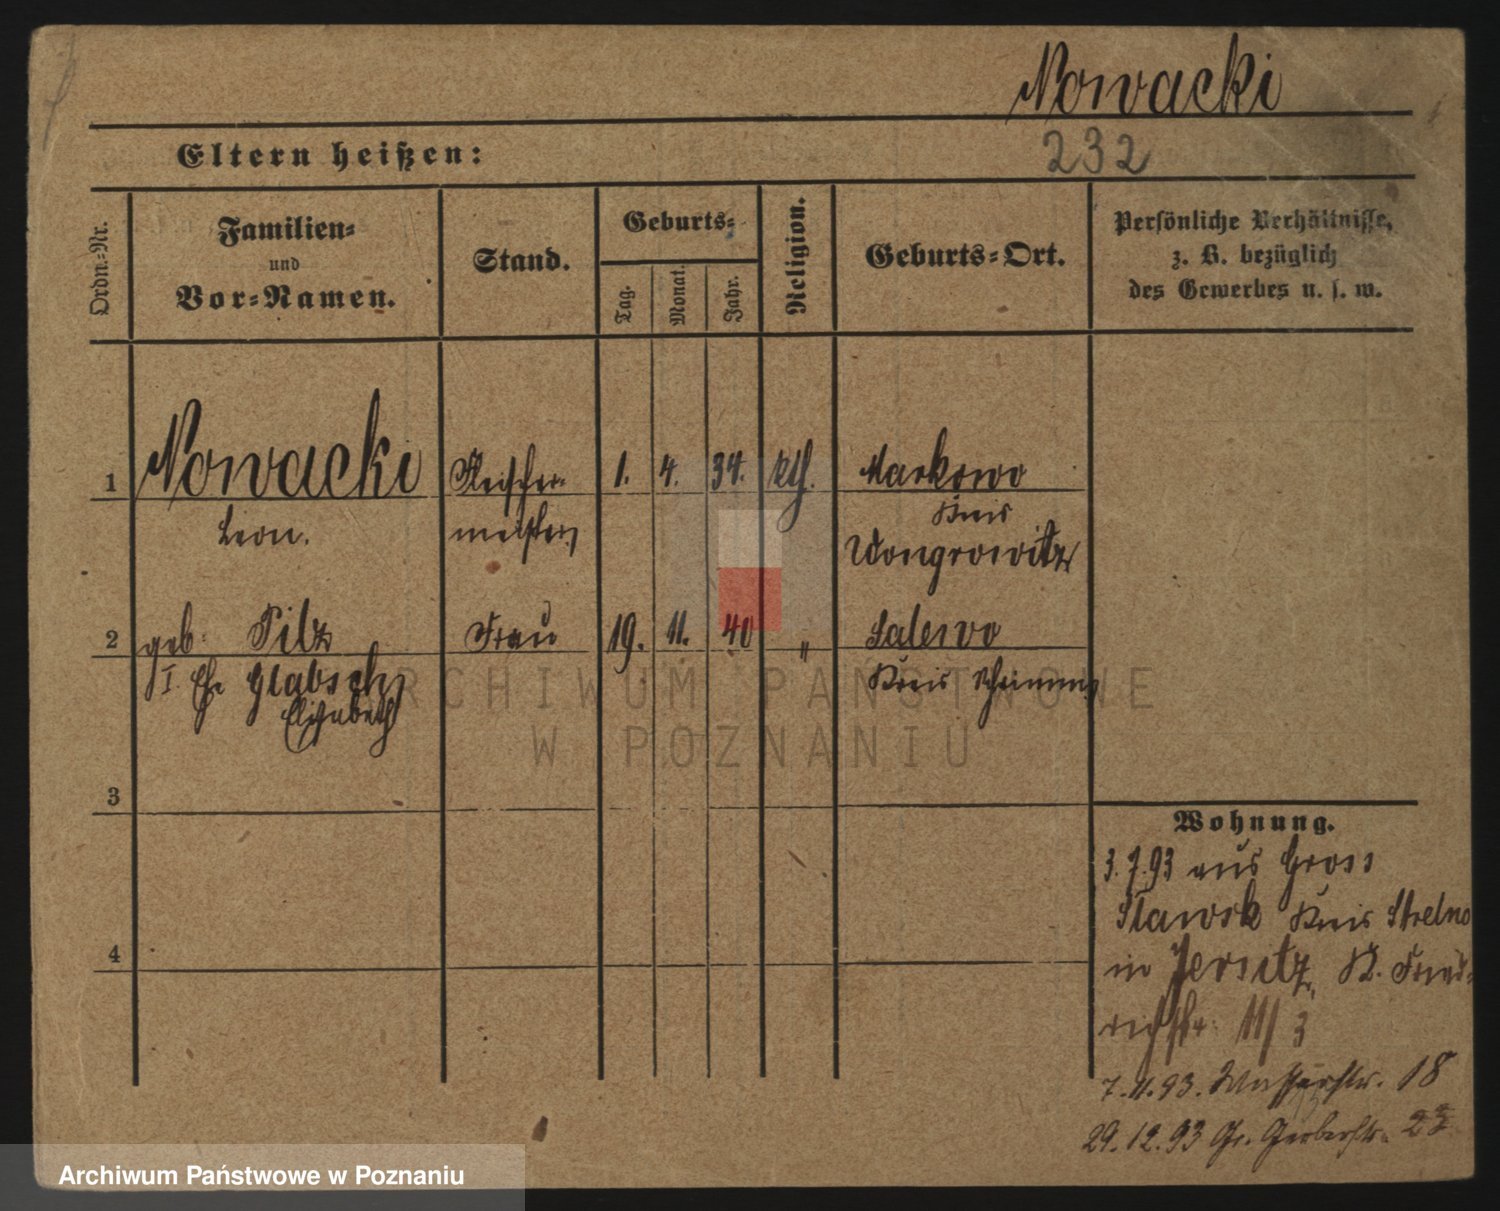 Nowacki
232
Eltern heißen:
Ordn.-Nr.
Familien-
und
Vor-Namen.
Stand.
Geburts-
Tag.
Monat.
Jahr.
Religion.
Geburts-Ort.
Persönliche Verhältnisse,
z. B. bezüglich
des Gewerbes u. s. w.
1 Nowacki Fleischer- 1. 4. 34. kth. Markowo
Leon. meister Kreis
Wongrowitz
2 geb. Pilz Frau 19. 11. 40 " Salewo
I. Ehe Glabsch Kreis
Elisabeth
3
4
Wohnung.
3.7.93 aus Gross
Slawsk Kreis Strelno
in Jersitz, K. Fried-
richstr. 11/3
7.11.93. Wasserstr. 18
29.12.93 Gr. Gerberstr. 23
ARCHIWUM PAŃSTWOWE
W POZNANIU
Archiwum Państwowe w Poznaniu